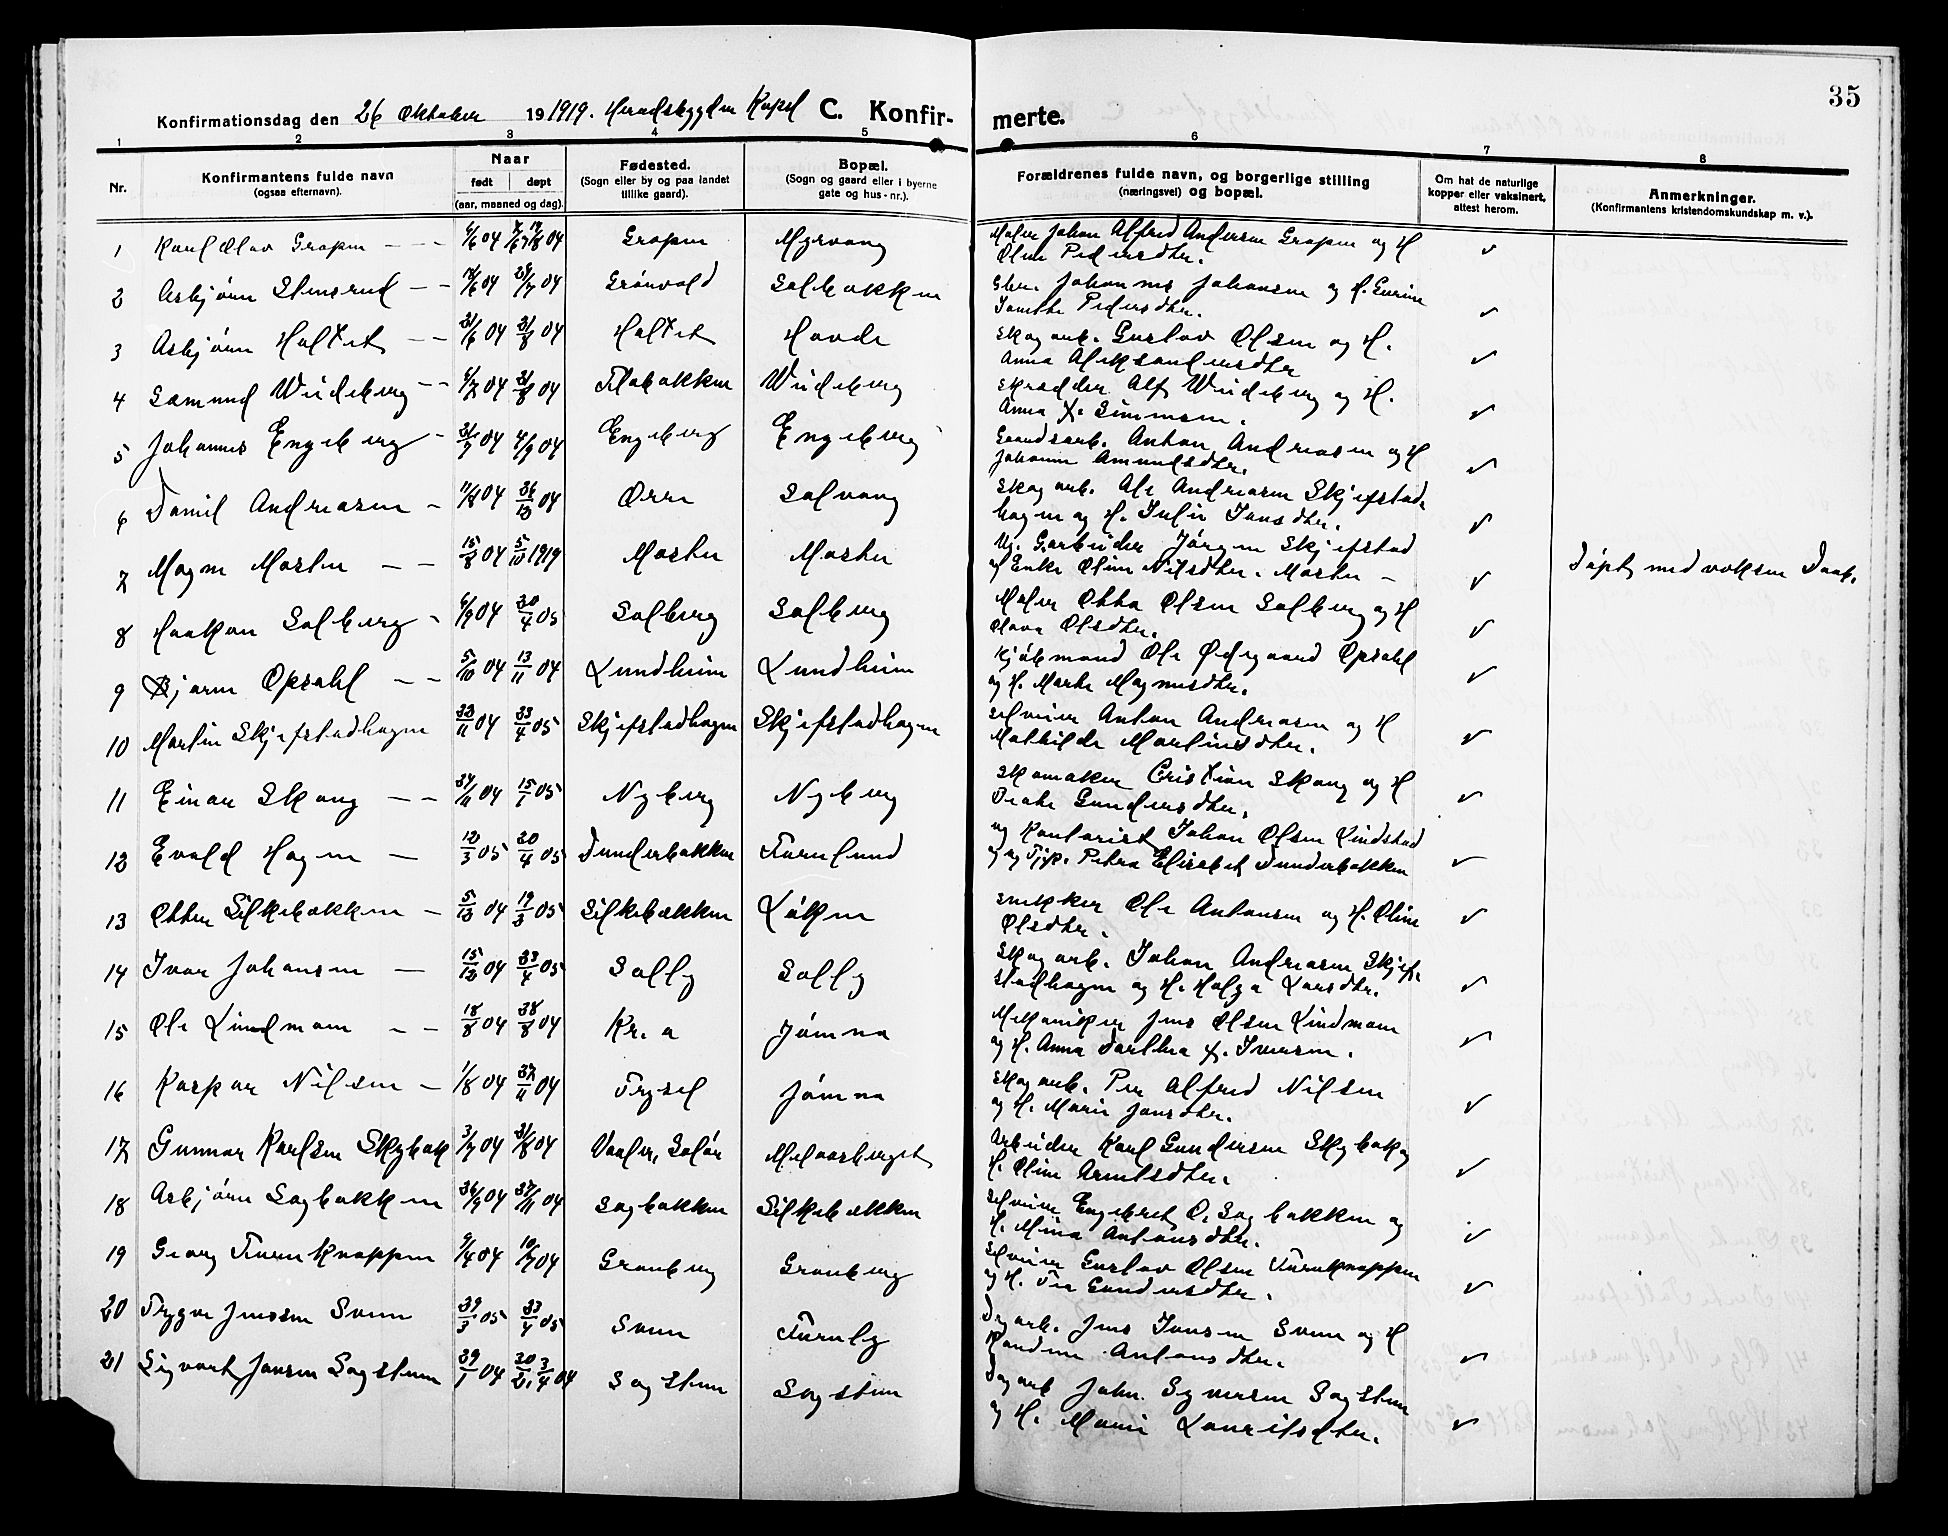 35
Konfirmationsdag den 26 Oktober 19 1919. Heradsbygden Kapel C. Konfir-
merte.
1 2 3 4 5 6 7 8
Nr. Konfirmantens fulde navn (ogsaa efternavn). Naar født døpt (aar, maaned og dag). Fødested. (Sogn eller by og paa landet tillike gaard). Bopæl. (Sogn og gaard eller i byerne gate og hus-nr.). Forældrenes fulde navn, og borgerlige stilling (næringsvei) og bopæl. Om hat de naturlige kopper eller vaksinert, attest herom. Anmerkninger. (Konfirmantens kristendomskundskap m. v.).
1 Karl Olav Grapen - - - 04 04 Grapen Myrvang Maler Johan Alfred Andersen Grapen og H
Oline Pedersdtr. v
2 Asbjørn Stensrud - - 04 04 Grönvold Solbakken Johannes Johansen og H. Gurine
Pedersdtr. v
3 Asbjørn Haltet - - 21/6 04 21/8 04 Haltet Hovde Skogarb. Gustav Olsen og H.
Anna Aleksandersdtr v
4 Wiideberg - - 04 21/8 04 Flobakken Wiideberg Skrædder Alf Wiideberg og H.
Anna K. Simensen. v
5 Johannes Engeberg - 04 4/9 04 Engeberg Engeberg Anton Andreasen og H
Johanne Amundsdtr. v
6 Daniel Andreasen - 11/8 04 04 Ørre Solvang Skogarb. Ole Andreasen Skjefstad-
hagen og H. Julie Jensdtr. v
7 Magne Marten - - 15/8 04 5/10 1919 Marten Marten Ug. G.arbeider Jørgen Skjefstad
og Enke Oline Nilsdtr. Marten - v Døpt med voksen Daab.
8 Haakon Solberg - 6/9 04 30/4 05 Solberg Solberg Maler Otto Olsen Solberg og H
Olava Olsdtr. v
9 Bjarne Opsahl - - 5/10 04 13/11 04 Lundheim Lundheim Kjøbmand Ole Ødegaard Opsahl
og H. Marte Magnusdtr. v
10 Martin Skjefstadhagen 23/11 04 23/4 05 Skjefstadhagen Skjefstadhagen Selveier Anton Andreasen og H
Mathilde Martinsdtr. v
11 Einar Skaug - - 04 15/1 05 Nyberg Nyberg Skomaker Cristian Skaug og H
Gundersdtr. v
12 Evald Hagen - 12/3 05 30/4 05 Dunderbakken Furulund ug Kontorist Johan Olsen Lindstad
og ug Pige. Petra Elisabet Dunderbakken v
13 Otter Silkebækken - 5/12 04 19/3 05 Silkebækken Løken Snekker Ole Antonsen og H. Oline
Olsdtr. v
14 Ivar Johansen - 15/12 04 23/4 05 Solly Solly Skogarb. Johan Andreasen Skjef-
stadhagen og H. Helga Larsdtr. v
15 Ole Lindmann - - 18/8 04 28/8 04 Kr.a Jømna Mekaniker Jens Olsen Lindmann
og H. Anna Dorthea K. Iversen. v
16 Kaspar Nilsen - 1/8 04 27/11 04 Trysil Jømna Skogarb. Per Alfred Nilsen
og H. Marie Jonsdtr. v
17 Gunnar Karlsen Skybak 3/7 04 21/8 04 Vaaler, Solør Melaasberget Arbeider Karl Gundersen Skybak og
H. Oline Arnesdtr. v
18 Asbjørn Sagbakken 26/9 04 27/11 04 Sagbakken Silkebækken Selveier Engebret O. Sagbakken og
H. Mina Antonsdtr. v
19 Georg Furuknappen 9/4 04 10/7 04 Granberg Granberg Selveier Gustav Olsen Furuknappen
og H. Tea Gundersdtr. v
20 Trygve Jensen Sveen 29/3 05 23/4 05 Sveen Furuly Dagarb. Jens Jensen Sveen og H
Randine Antonsdtr. v
21 Sigvart Jonsen Sagstuen 29/1 04 3/4 04 Sagstuen Sagstuen Dagarb John. Syversen Sagstuen
og H. Marie Lauritsdtr. v